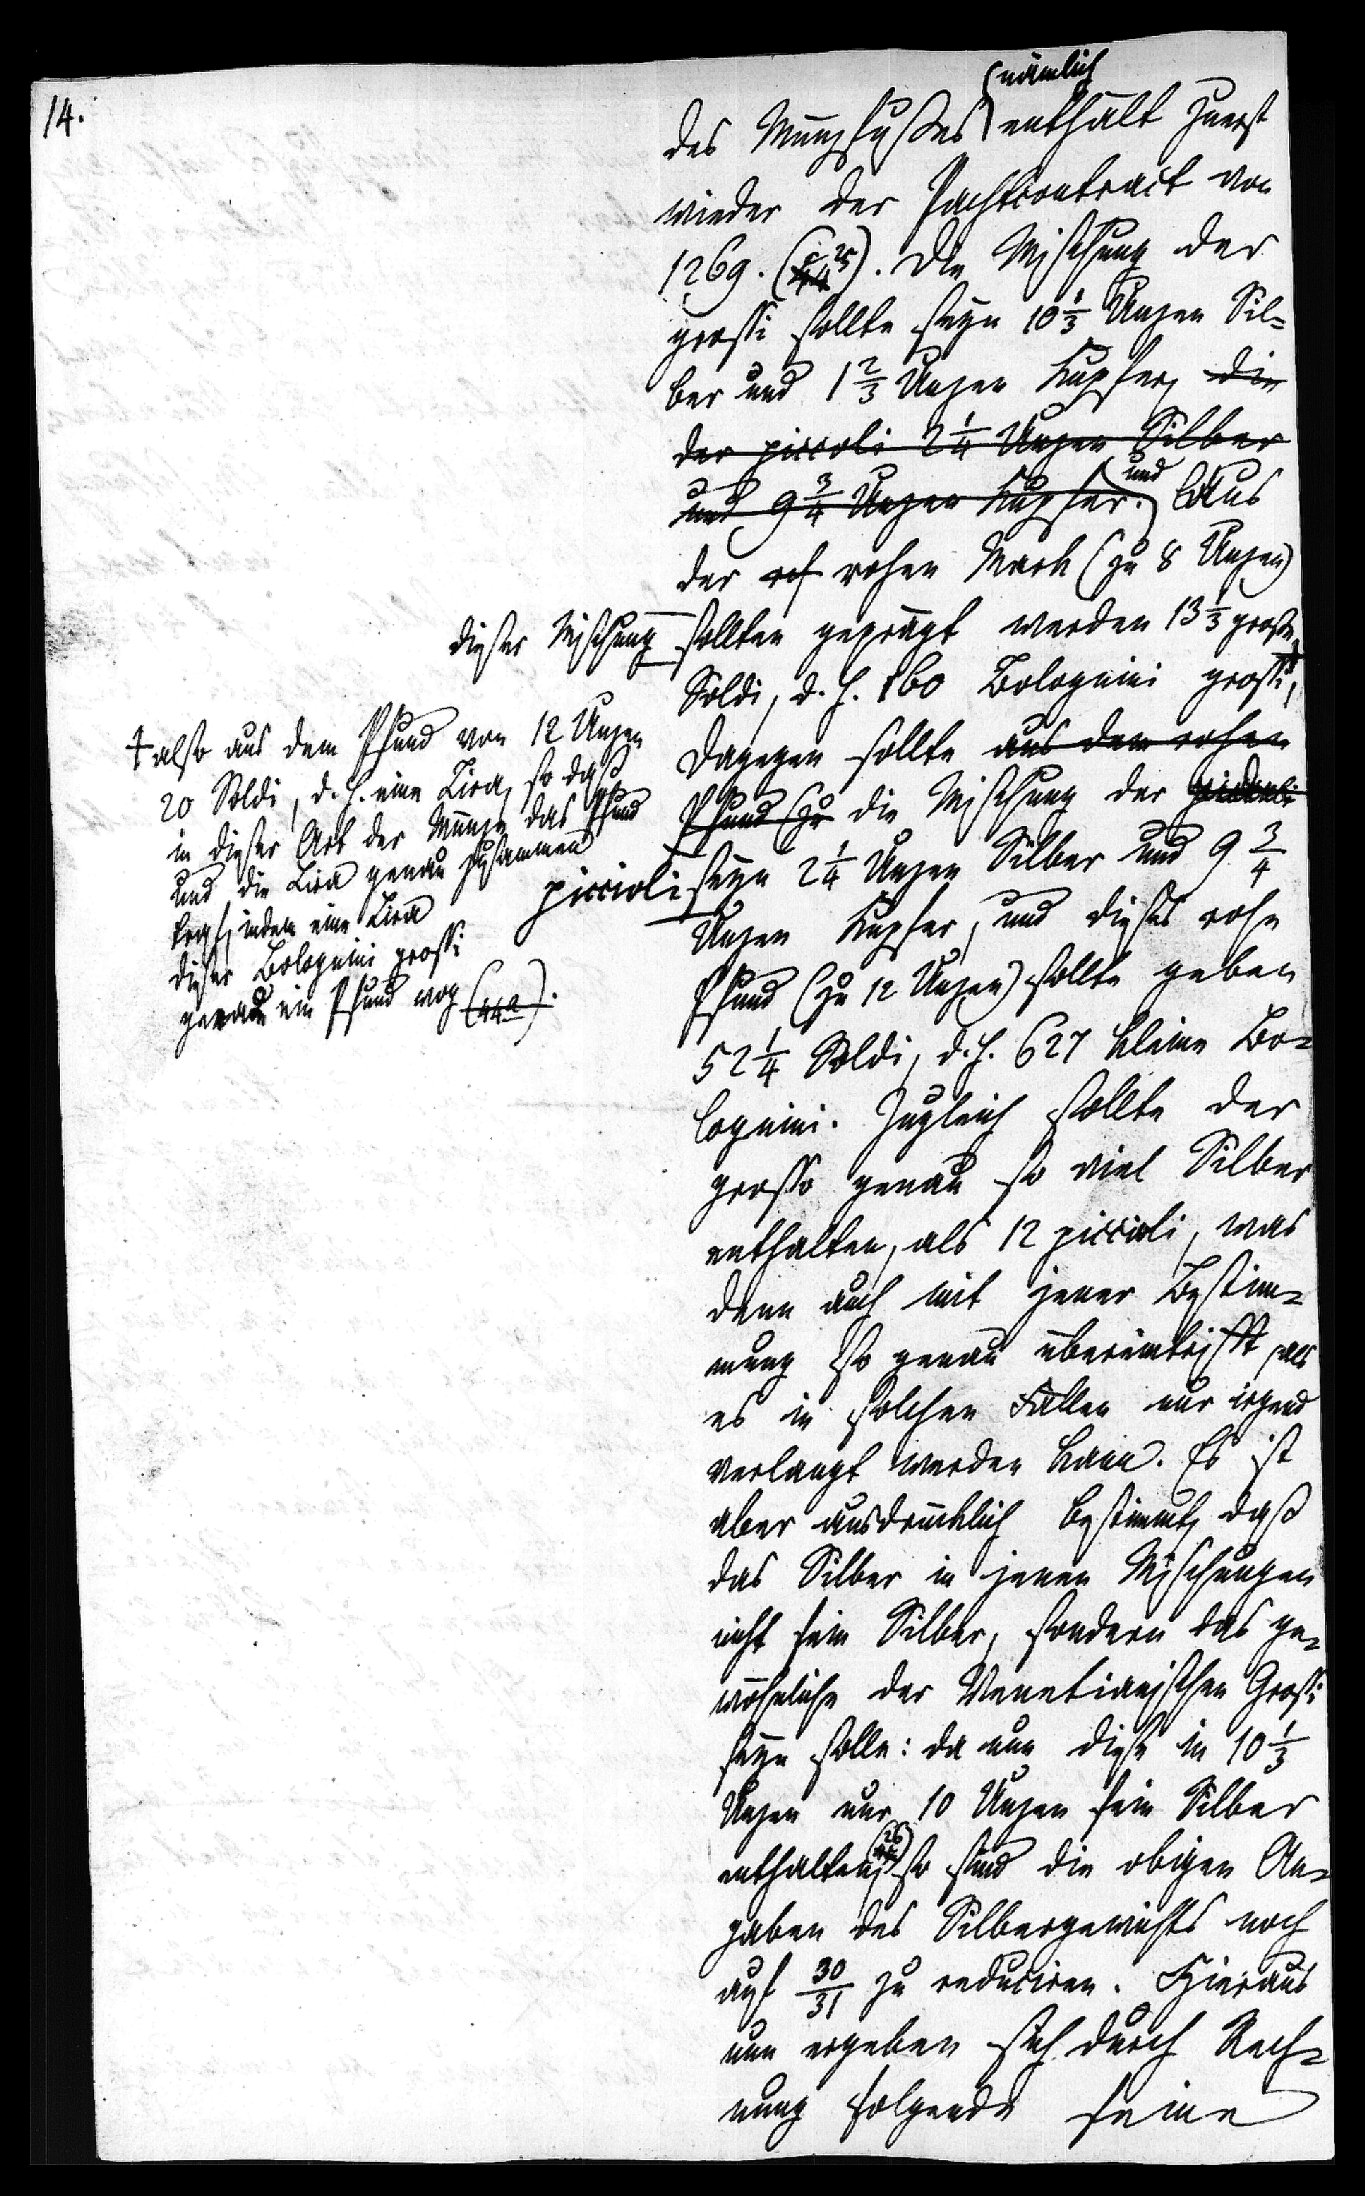 14.
nämlich
des Münzfußes enthält zuerst
wieder der Pachtcontract von
1269. (25). Die Mischung der
grossi sollte seyn 10 1/3 Unzen Sil=
ber und 1 2/3 Unzen Kupfer, die
der piccoli 2 1/4 Unzen Silber
und 9 3/4 Unzen Kupfer. und Aus
der rohen Mark (zu 8 Unzen)
dieser Mischung sollten geprägt werden 13 1/3 große
Soldi, d. h. 160 Bolognini grossi, +
Dagegen sollte aus dem rohen
Pfund (zu die Mischung der piccioli
piccioli seyn 2 1/4 Unzen Silber und 9 3/4
Unzen Kupfer, und dieses rohe
Pfund (zu 12 Unzen) sollte geben
52 1/4 Soldi, d. h. 627 kleine Bo=
lognini. Zugleich sollte der
grosso genau so viel Silber
enthalten, als 12 piccioli, was
denn auch mit jener Bestim=
mung so genau übereintrifft, als
es in solchen Fällen nur irgend
verlangt werden kann. Es ist
aber ausdrücklich bestimmt, daß
das Silber in jenen Mischungen
nicht fein Silber, sondern das ge=
wöhnliche der Venetianischen Grossi
seyn solle: da nun diese in 10 1/3
Unzen nur 10 Unzen fein Silber
enthalten, (26) so sind die obigen An=
gaben des Silbergewichts noch
auf 30/31 zu reduciren. Hieraus
nun ergeben sich durch Rech=
nung folgende feine
+ also aus dem Pfund von 12 Unzen
20 Soldi, d. h. eine Lira, so daß
in dieser Art der Münze das Pfund
und die Lira genau zusammen
traf, indem eine Lira
dieser Bolognini grossi
gerade ein Pfund wog (44a).